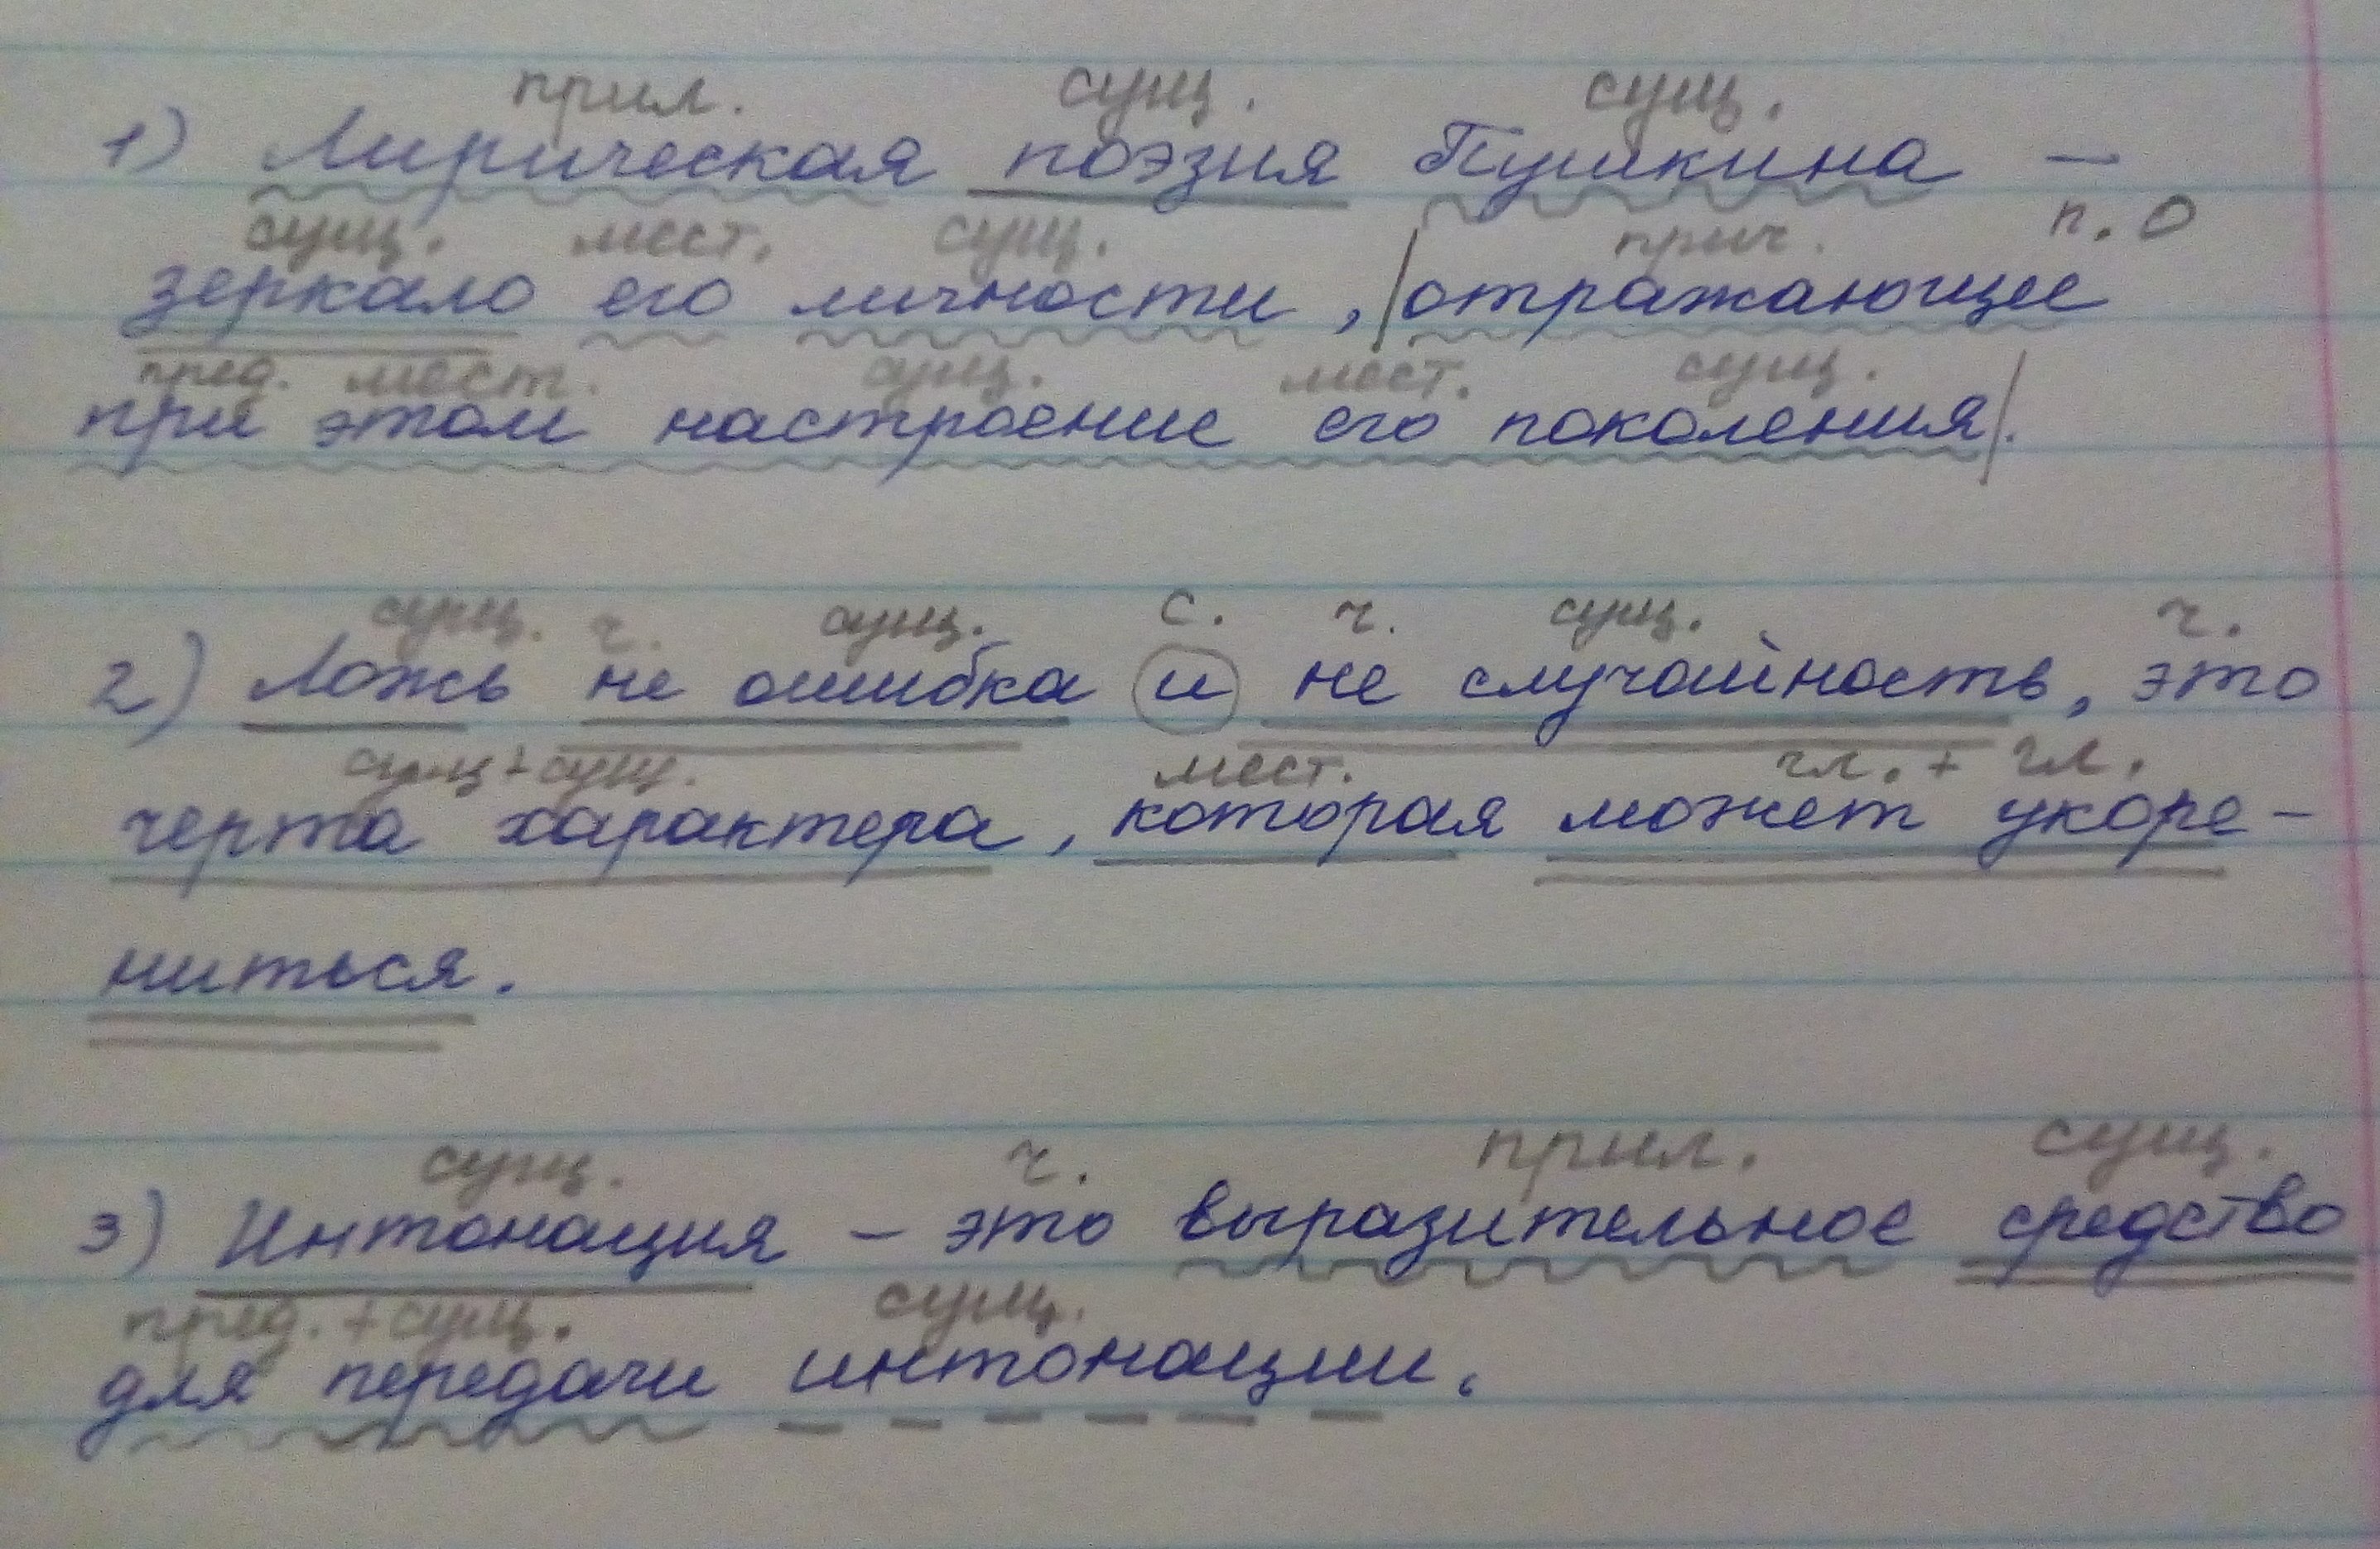 прил. сущ. сущ.
1) Лирическая поэзия Пушкина –
сущ. мест. сущ. прич. п. О
зеркало его личности, |отражающие
пред. мест. сущ. мест. сущ.
при этом настроение его поколения|.
сущ. ч. сущ. с. ч. сущ. ч.
2) Ложь не ошибка и не случайность, это
сущ + сущ. мест. гл. + гл.
черта характера, которая может укоре-
ниться.
сущ. ч. прил. сущ.
3) Интонация – это выразительное средство
пред. + сущ. сущ.
для передачи интонации.